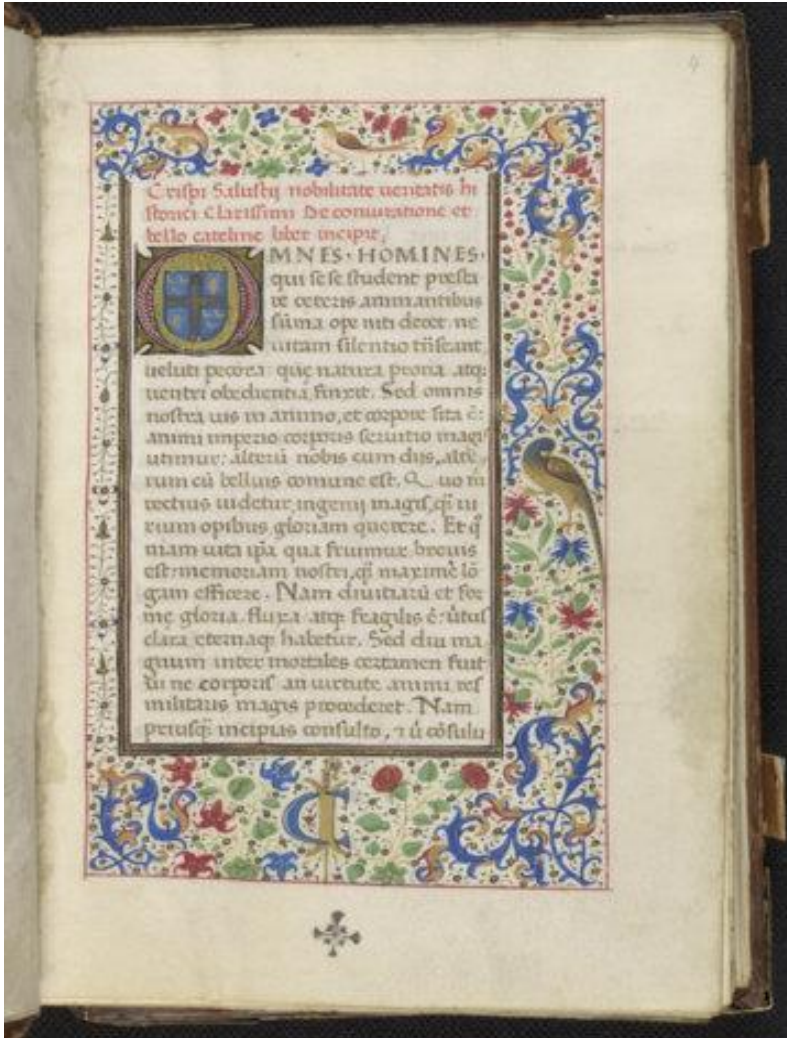 4
Crispi Salustij nobilitate ueritatis hi
storici Clarissimi De coniuratione et
bello cateline liber incipit,
OMNES · HOMINES ·
qui sese student presta
re ceteris animantibus
sūma ope niti decet ne
uitam silentio trāseant
ueluti pecora que natura prona atq;
uentri obedientia finxit. Sed omnis
nostra uis in animo, et corpore sita ē:
animi imperio corporis seruitio magis
utimur: alterū nobis cum dijs, alte
rum cū belluis comune est. Quo m̄
rectius uidetur ingenij magis, q̄ ui
rium opibus gloriam querere. Et q̄
niam uita ip̄a qua fruimur breuis
est: memoriam nostri, q̄ maxime lō
gam efficere. Nam diuitiarū et for
me gloria fluxa atq; fragilis ē: ūtus
clara eternaq; habetur. Sed diu ma
gnum inter mortales certamen fuit
ui ne corporis an uirtute animi res
militaris magis procederet. Nam
priusq̄ incipias consulto, ⁊ ū cōsulu
C